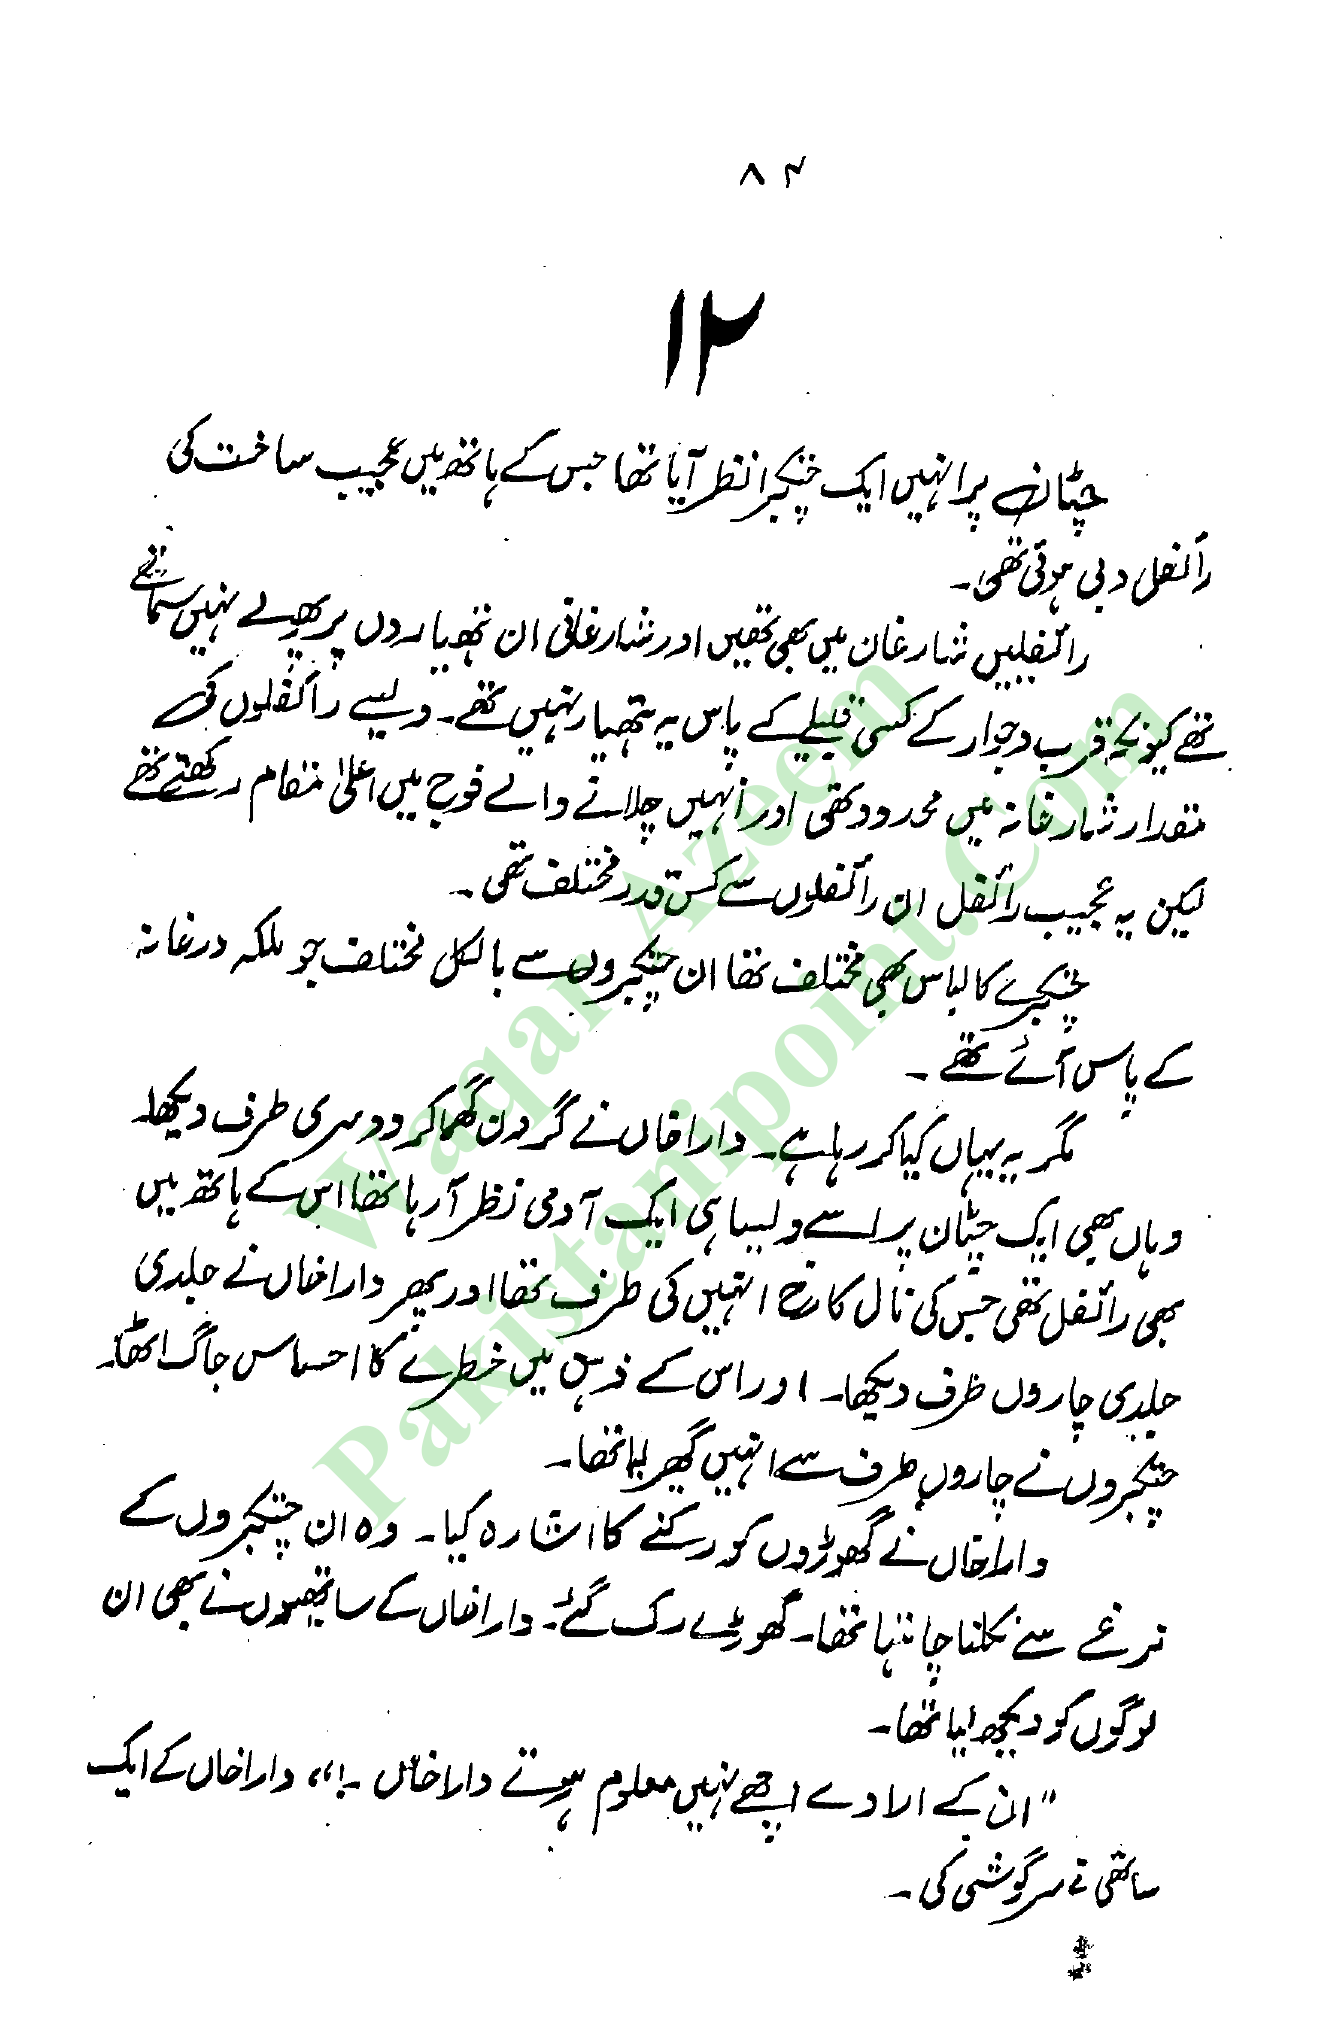 ۸۴
۱۲
چٹان پر انہیں ایک چتکبرا نظر آیا تھا جس کے ہاتھ میں عجیب ساخت کی
رائفل دبی ہوئی تھی۔
رائفلیں شارغان میں بھی تھیں اور شارغانی ان ہتھیاروں پر پھولے نہیں سماتے
تھے کیونکہ قرب و جوار کے کسی قبیلے کے پاس یہ ہتھیار نہیں تھے۔ ویسے رائفلوں کی
مقدار شارغانہ میں محدود تھی اور انہیں چلانے والے فوج میں اعلیٰ مقام رکھتے تھے
لیکن یہ عجیب رائفل ان رائفلوں سے کس قدر مختلف تھی۔
چتکبرے کا لباس بھی مختلف تھا ان چتکبروں سے بالکل مختلف جو ملکہ درغانہ
کے پاس آئے تھے۔
مگر یہ یہاں کیا کر رہا ہے۔ دارا خاں نے گردن گھما کر دوسری طرف دیکھا۔
وہاں بھی ایک چٹان پر اسے ویسا ہی ایک آدمی نظر آ رہا تھا اس کے ہاتھ میں
بھی رائفل تھی جس کی نال کا رخ انہیں کی طرف تھا اور پھر دارا خاں نے جلدی
جلدی چاروں طرف دیکھا۔ اور اس کے ذہن میں خطرے کا احساس جاگ اٹھا۔
چتکبروں نے چاروں طرف سے انہیں گھیر لیا تھا۔
دارا خاں نے گھوڑوں کو رکنے کا اشارہ کیا۔ وہ ان چتکبروں کے
نرغے سے نکلنا چاہتا تھا۔ گھوڑے رک گئے۔ دارا خاں کے ساتھیوں نے بھی ان
لوگوں کو دیکھ لیا تھا۔
"ان کے ارادے اچھے نہیں معلوم ہوتے دارا خاں۔!" دارا خاں کے ایک
ساتھی نے سرگوشی کی۔
Waqar Azeem
Pakistanipoint.Com